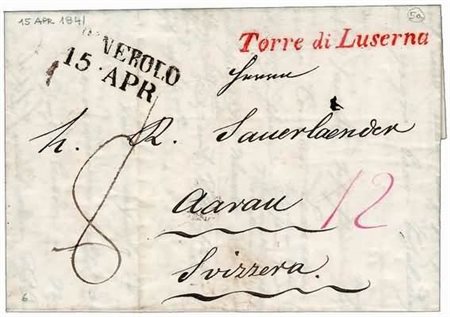 15 APR 1841
50
NEROLO
15 APR
Torre di Luserna
Herrn
H. R. Sauerlaender
8
Aarau 12
Svizzera.
6